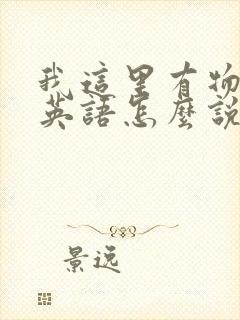 我這里有物
英語怎麼說
景逸